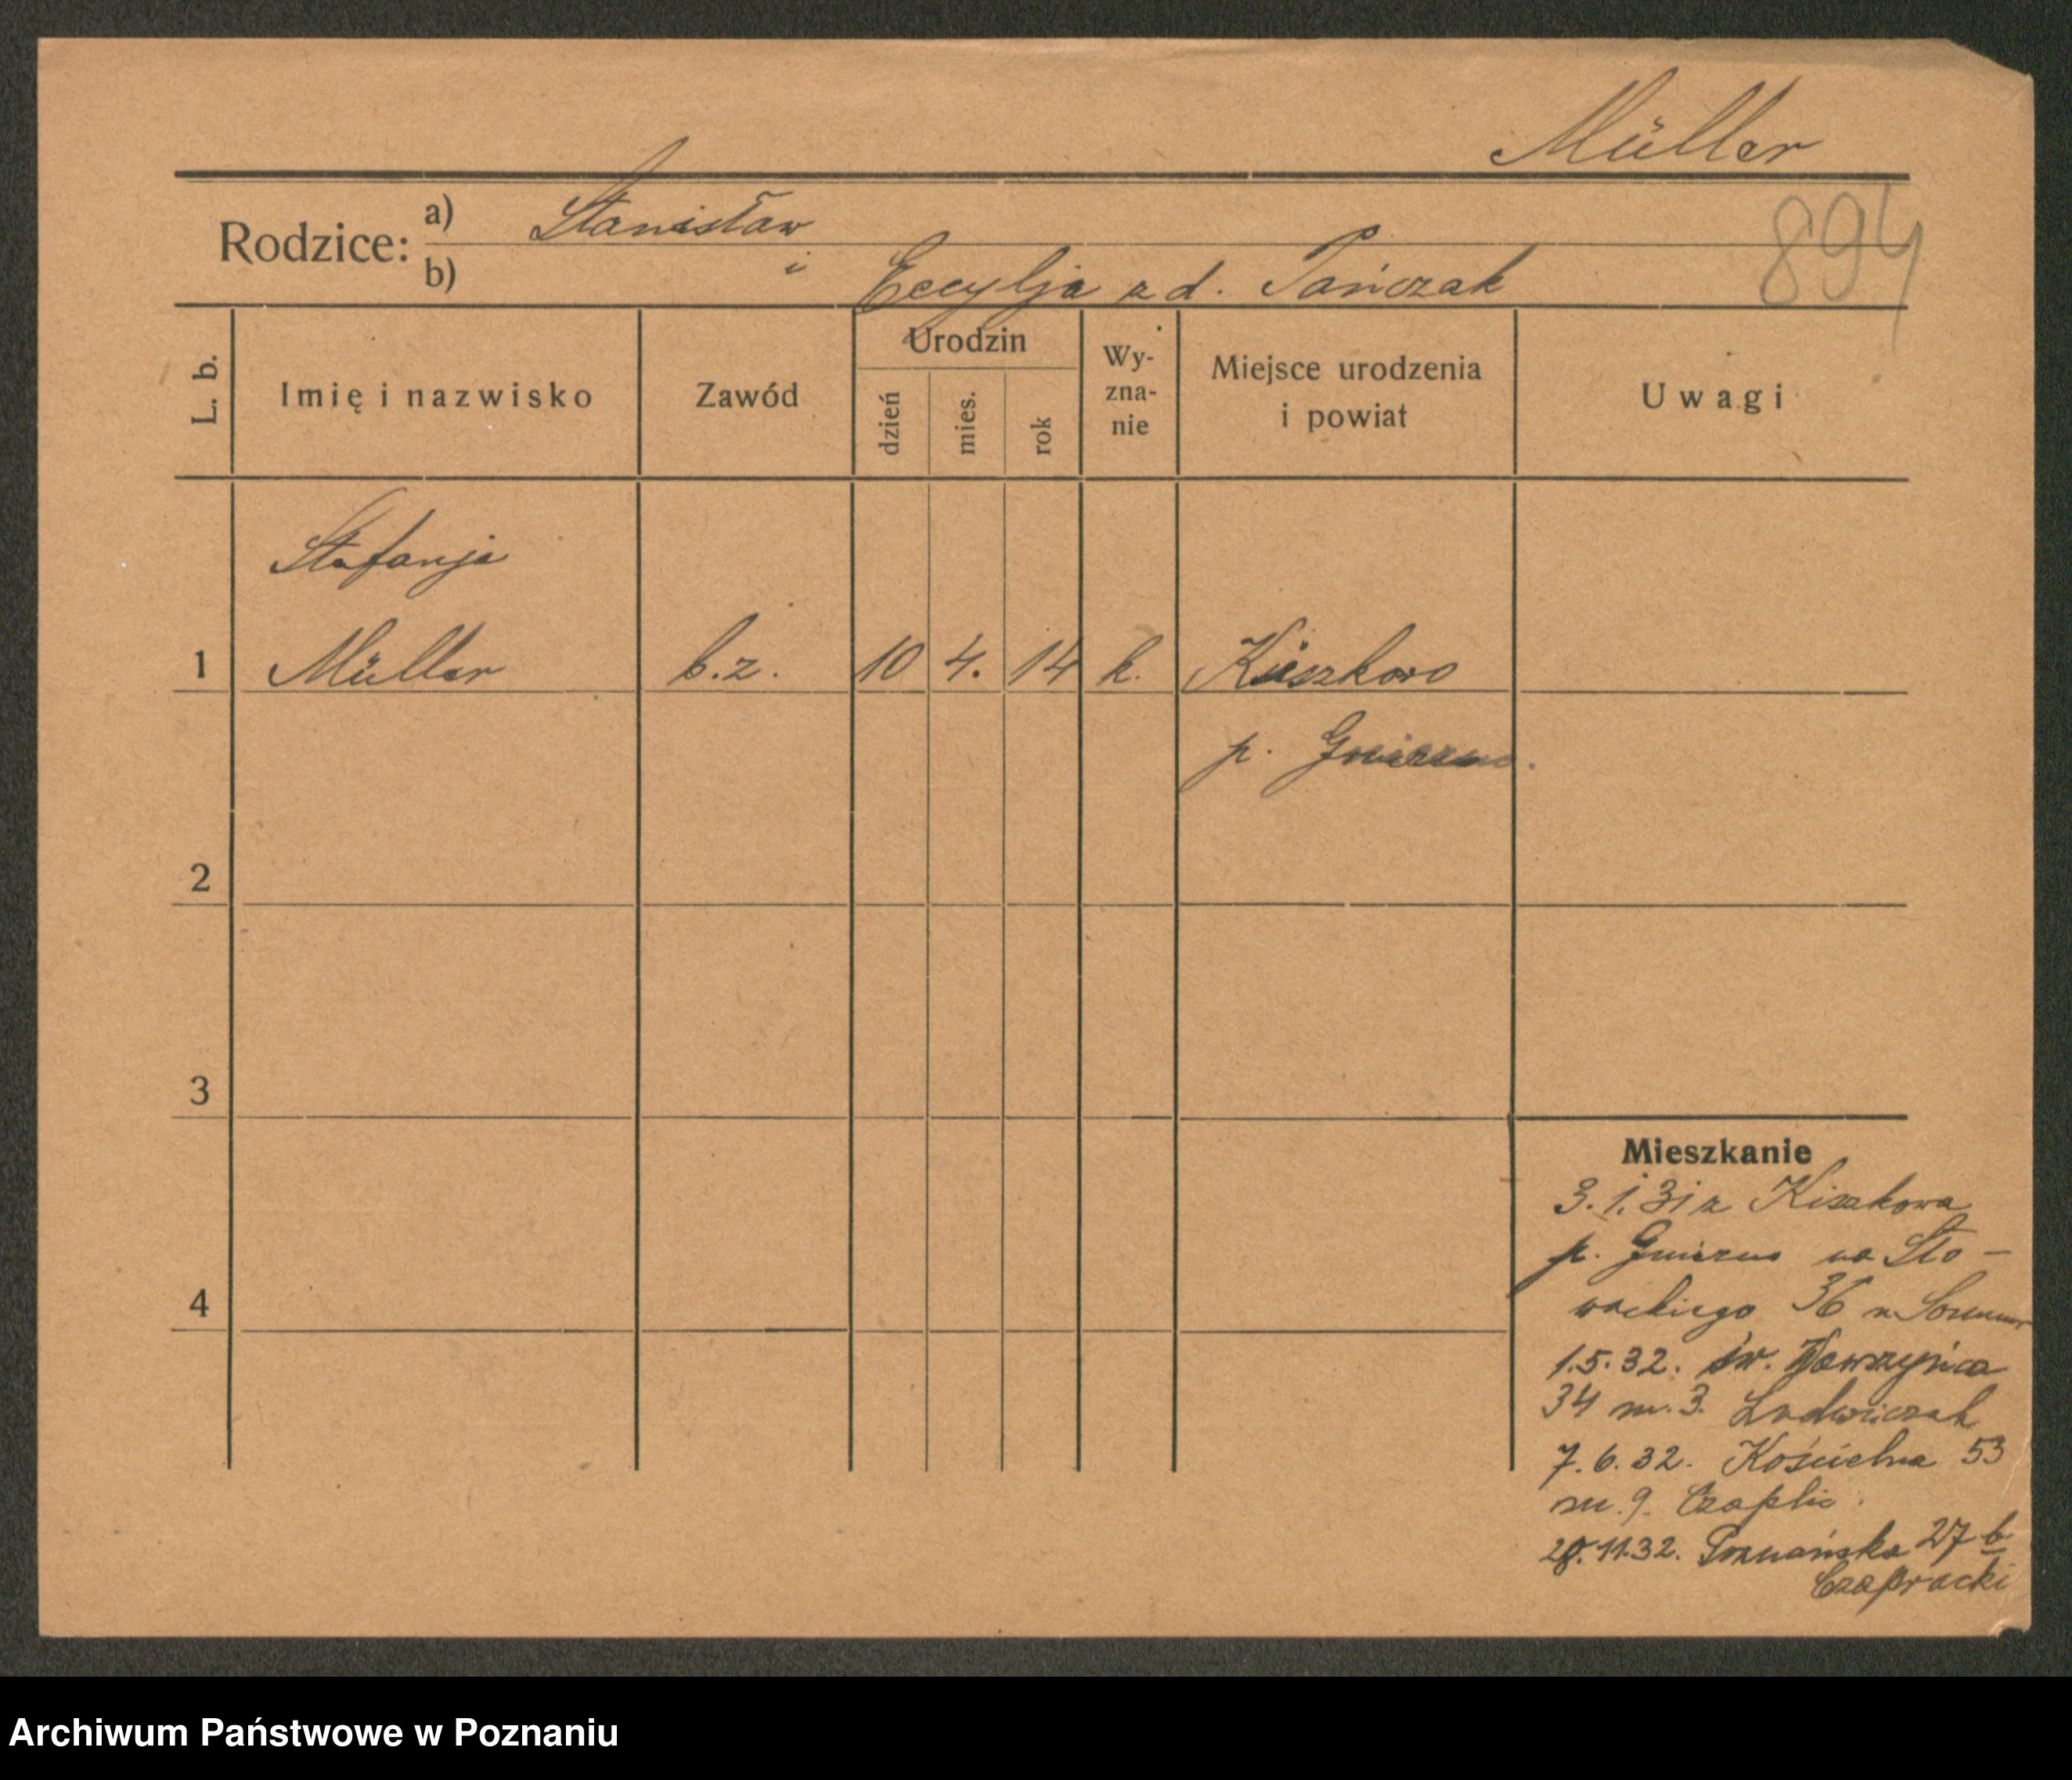 Müller
Rodzice: a) Stanisław
894
b) i Cecylja z d. Tańczak
L. b.
Imię i nazwisko
Zawód
Urodzin
dzień
mies.
rok
Wy-
zna-
nie
Miejsce urodzenia
i powiat
Uwagi
Stefanja
1 Müller b.z. 10 4. 14 k. Kiszkowo
p. Gniezno.
2
3
4
Mieszkanie
3.1.31 z Kiszkowa
p. Gniezno na Sło-
wackiego 36 n
1.5.32. św. Wawrzyńca
34 m. 3. Ludwiczak
7.6.32. Kościelna 53
m. 9. Czaplic.
28.11.32. Poznańska 27 b
Czapracki
Archiwum Państwowe w Poznaniu